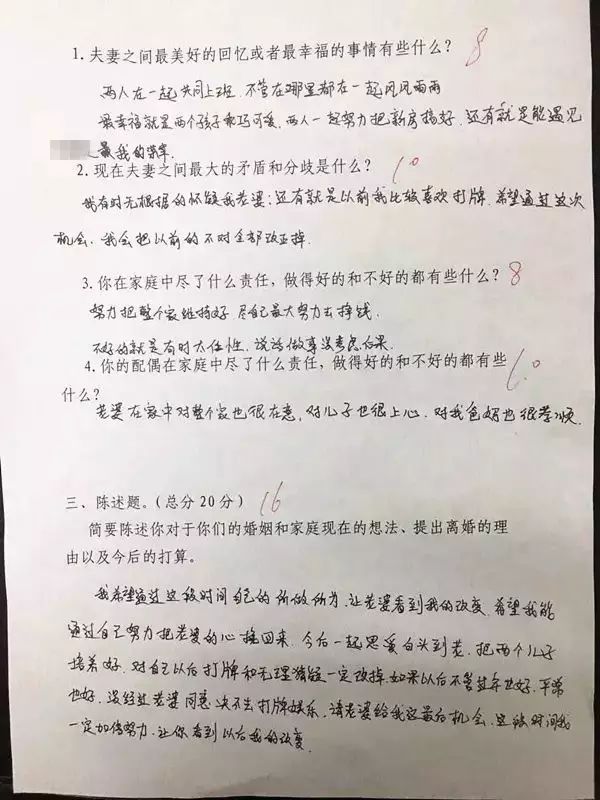 1. 夫妻之间最美好的回忆或者最幸福的事情有些什么？ 8
两人在一起共同上班，不管在哪里都在一起风风雨雨
最幸福就是两个孩子乖巧可爱，两人一起努力把新房搞好，还有就是能遇见
是我的荣幸
2. 现在夫妻之间最大的矛盾和分歧是什么？ 10
我有时无根据的怀疑我老婆；还有就是以前我比较喜欢打牌，希望通过这次
机会，我会把以前的不对全部改正掉。
3. 你在家庭中尽了什么责任，做得好的和不好的都有些什么？ 8
努力把整个家维持好，尽自己最大努力去挣钱
不好的就是有时太任性，说话做事没考虑后果
4. 你的配偶在家庭中尽了什么责任，做得好的和不好的都有些 10
什么？
老婆在家中对整个家也很在意，对儿子也很上心，对我爸妈也很孝顺
三、陈述题。（总分 20 分） 16
简要陈述你对于你们的婚姻和家庭现在的想法、提出离婚的理
由以及今后的打算。
我希望通过这段时间自己的所做所为，让老婆看到我的改变，希望我能
通过自己努力把老婆的心挽回来，今后一起恩爱白头到老，把两个儿子
培养好，对自己以后打牌和无理猜疑一定改掉，如果以后不管过年也好，平常
也好，没经过老婆同意决不去打牌娱乐，请老婆给我这最后机会，这段时间我
一定加倍努力，让你看到以后我的改变。